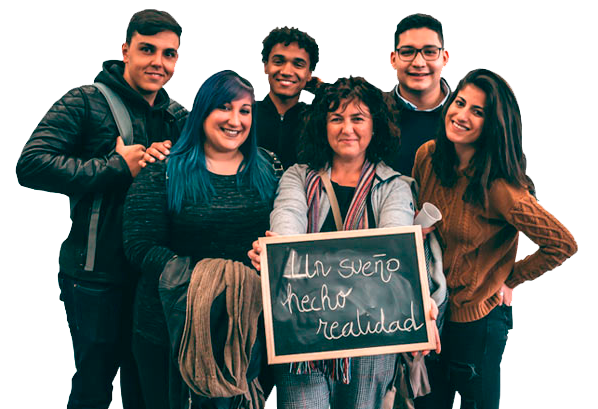 Un sueño
hecho
realidad